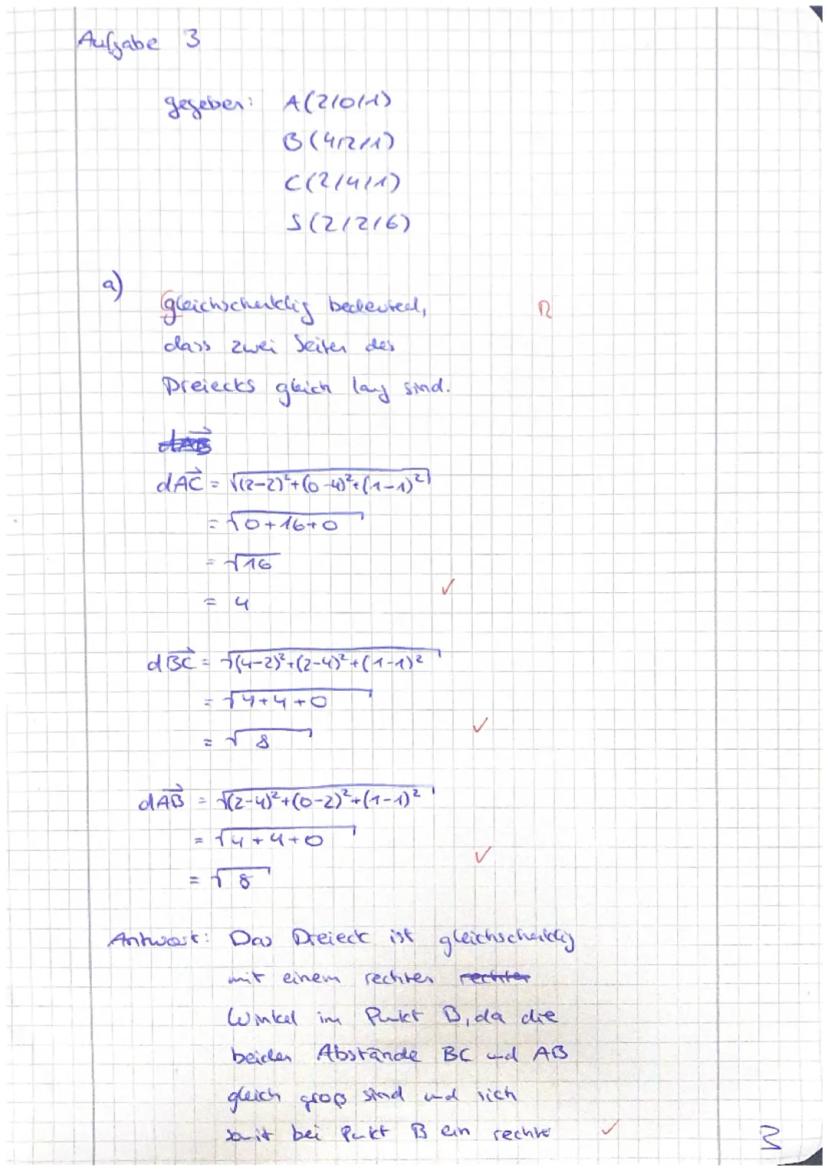 Aufgabe 3
gegeben: A(2/0/1)
B(4/2/1)
C(2/4/1)
S(2/2/6)
a)
gleichschenklig bedeuted, R
dass zwei Seiten des
Dreiecks gleich lang sind.
dAB
dAC = √(2-2)²+(0-4)²+(1-1)²
= √0+16+0
= √16
= 4 ✓
dBC = √(4-2)²+(2-4)²+(1-1)²
= √4+4+0
= √8 ✓
dAB = √(2-4)²+(0-2)²+(1-1)²
= √4+4+0 ✓
= √8
Antwort: Das Dreieck ist gleichschenklig
mit einem rechten rechten
Winkel im Punkt B, da die
beiden Abstände BC und AB
gleich groß sind und sich
somit bei Punkt B ein rechter ✓ 3